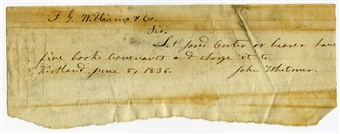 F. G. Williams & Co.
Sir,
Let Jared Carter or bearer have
five books Covenants and charge it to
Kirtland June 5, 1836. John Whitmer.